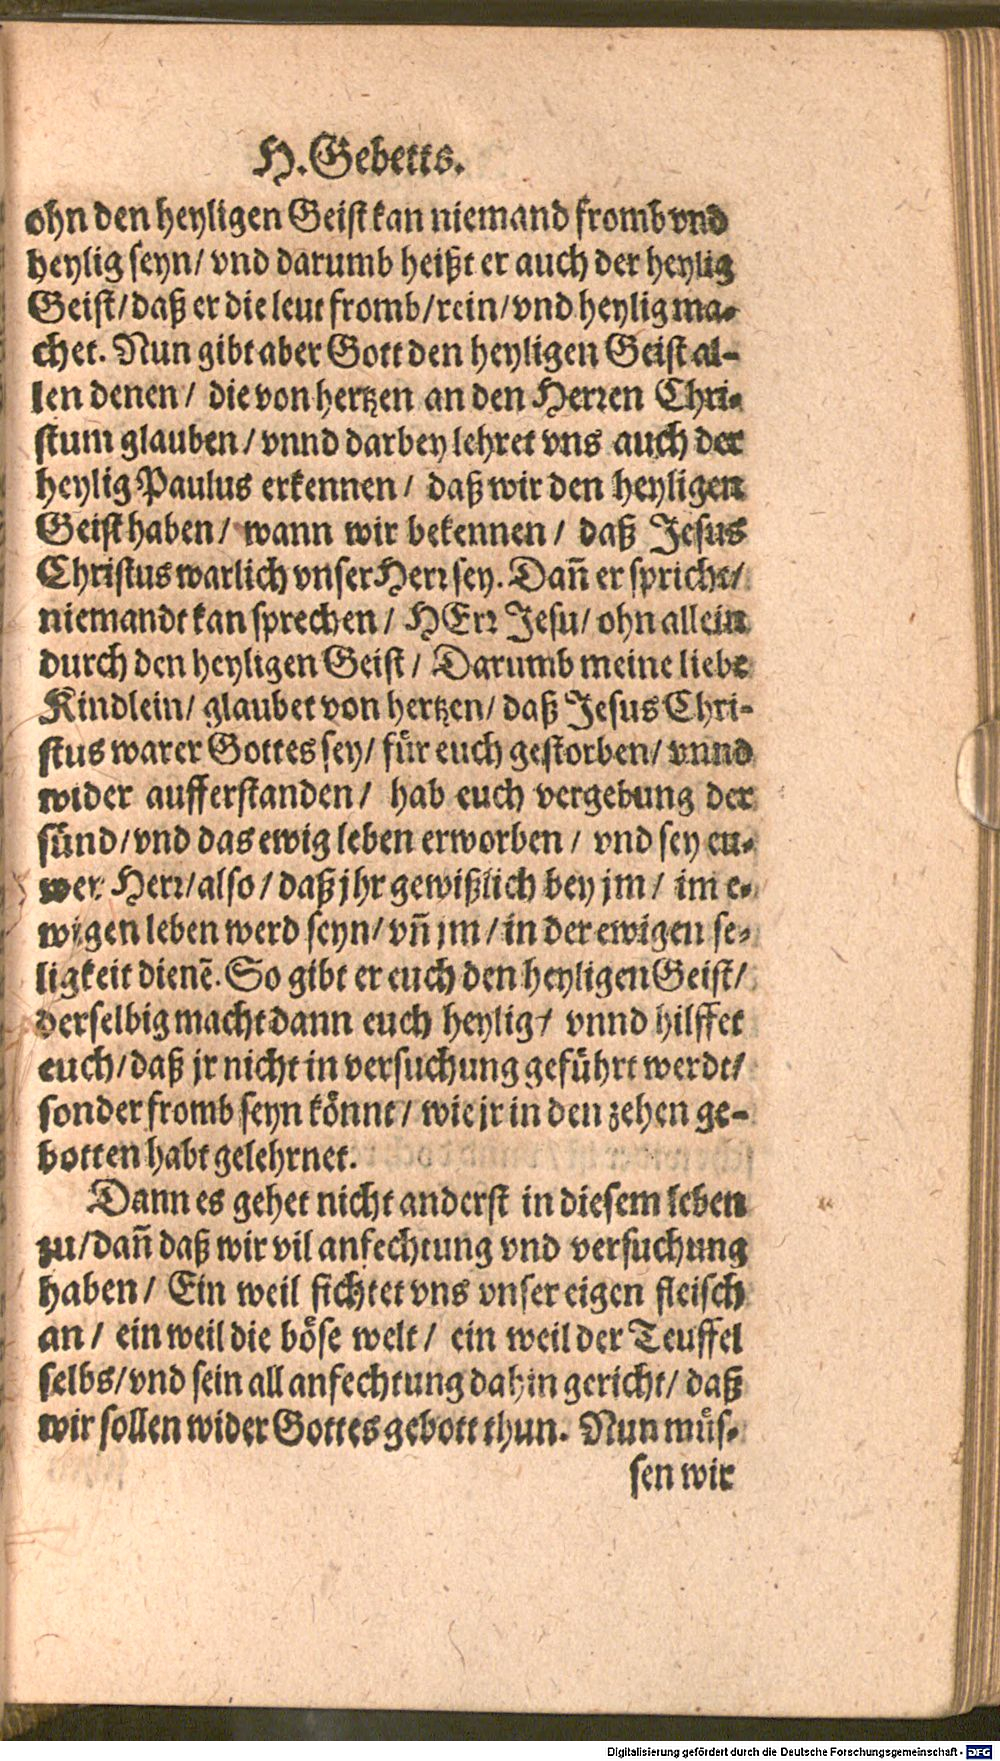 H. Gebetts.
ohn den heyligen Geist kan niemand fromb vnd
heylig seyn/ vnd darumb heißt er auch der heylig
Geist/ daß er die leut fromb/ rein/ vnd heylig ma-
chet. Nun gibt aber Gott den heyligen Geist al-
len denen/ die von hertzen an den Herren Chri-
stum glauben/ vnnd darbey lehret vns auch der
heylig Paulus erkennen/ daß wir den heyligen
Geist haben/ wann wir bekennen/ daß Jesus
Christus warlich vnser Herr sey. Dañ er spricht/
niemandt kan sprechen/ HErr Jesu/ ohn allein
durch den heyligen Geist/ Darumb meine liebe
Kindlein/ glaubet von hertzen/ daß Jesus Chri-
stus warer Gottes sey/ für euch gestorben/ vnnd
wider aufferstanden/ hab euch vergebung der
sünd/ vnd das ewig leben erworben/ vnd sey eu-
wer Herr/ also/ daß jhr gewißlich bey jm/ im e-
wigen leben werd seyn/ vñ jm/ in der ewigen se-
ligkeit dienẽ. So gibt er euch den heyligen Geist/
derselbig macht dann euch heylig/ vnnd hilffet
euch/ daß jr nicht in versuchung geführt werdt/
sonder fromb seyn könnt/ wie jr in den zehen ge-
botten habt gelehrnet.
Dann es gehet nicht anderst in diesem leben
zu/ dañ daß wir vil anfechtung vnd versuchung
haben/ Ein weil fichtet vns vnser eigen fleisch
an/ ein weil die böse welt/ ein weil der Teuffel
selbs/ vnd sein all anfechtung dahin gericht/ daß
wir sollen wider Gottes gebott thun. Nun müs-
sen wir
Digitalisierung gefördert durch die Deutsche Forschungsgemeinschaft - DFG